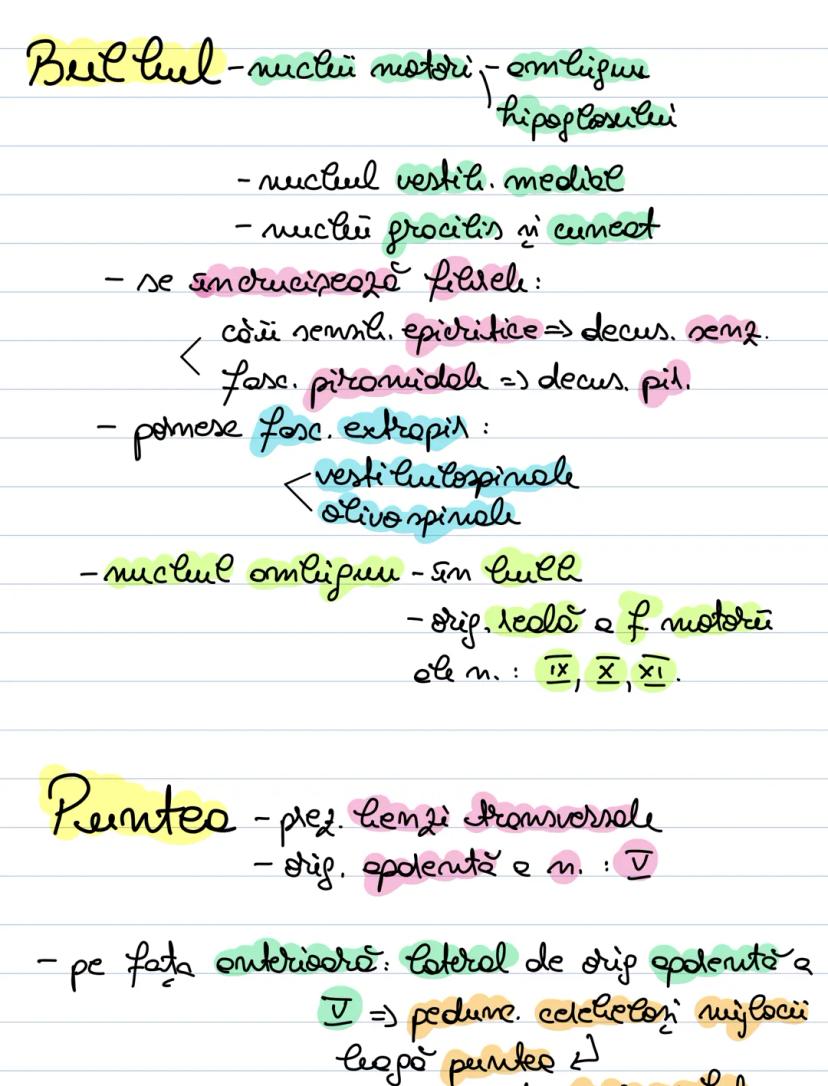 Bulbul - nucleii motori - ambiguu
hipoglosului
- nucleul vestib. medial
- nucleii gracilis și cuneat
- se încrucișează fibrele:
căii sensib. epicritice => decus. senz.
fasc. piramidale => decus. pir.
- pornesc fasc. extrapir:
vestibulospinale
olivospinale
- nucleul ambiguu - în bulb
- orig. reală a f motorii
ale n. : IX, X, XI.
Puntea - prez. benzi transversale
- orig. aparentă a n. : V
- pe fața anterioară: lateral de orig aparentă a
V => pedunc. cerebeloși mijlocii
leagă puntea